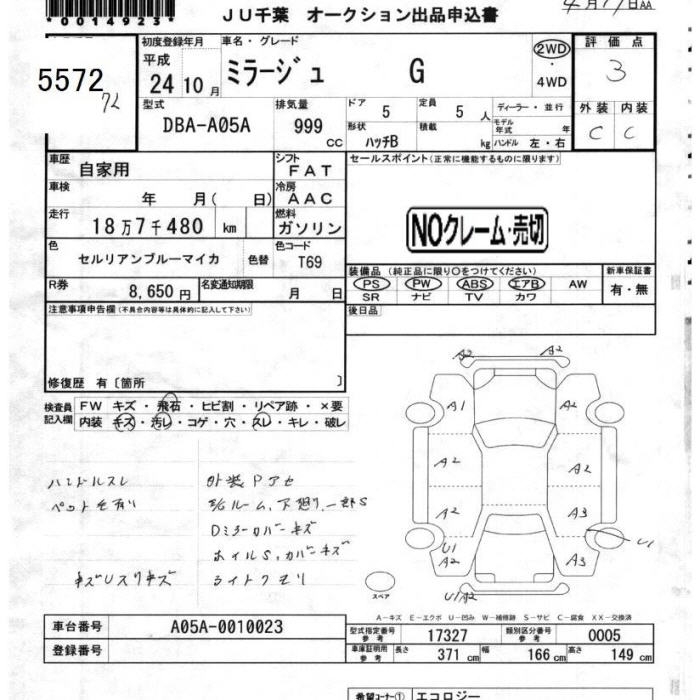 *0014923*
JU千葉 オークション出品申込書
4月17日AA
5572
初度登録年月
平成
24 10 月
車名・グレード
ミラージュ G
2WD
・
4WD
評価点
3
型式
DBA-A05A
排気量
999
cc
ドア
5
定員
5 人
形状
ハッチB
積載
kg
ディーラー・並行
モデル
年式
年
ハンドル 左・右
外装 内装
C C
車歴
自家用
シフト
FAT
車検
年 月( 日)
冷房
AAC
走行
18万7千480 km
燃料
ガソリン
色
セルリアンブルーマイカ
色替
色コード
T69
R券
8,650 円
名変通知期限
月 日
セールスポイント(正常に機能するものに限ります)
NOクレーム・売切
装備品 (純正品に限り○をつけてください)
PS PW ABS エアB AW
SR ナビ TV カワ
新車保証書
有・無
注意事項申告欄(不具合内容等は具体的に記入して下さい)
後日品
修復歴 有〔箇所 〕
検査員
記入欄
FW キズ・飛石・ヒビ割・リペア跡・×要
内装 キズ・汚レ・コゲ・穴・スレ・キレ・破レ
ハンドルスレ
外装Pアセ
ペット毛有り
下廻り、一部S
Dミラーカバーキズ
ホイルS、カバーキズ
ライトクモリ
A2 A2
A1 A2
A2 A2
A2 A3
U1
A2
A3
U1
U1 A2
スペア
A-キズ E-エクボ U-凹み W-補修跡 S-サビ C-腐食 XX-交換済
車台番号
A05A-0010023
登録番号
型式指定番号
参考
17327
類別区分番号
参考
0005
車庫証明用
参考
長さ
371 cm
幅
166 cm
高さ
149 cm
希望コーナー①
エコロジー